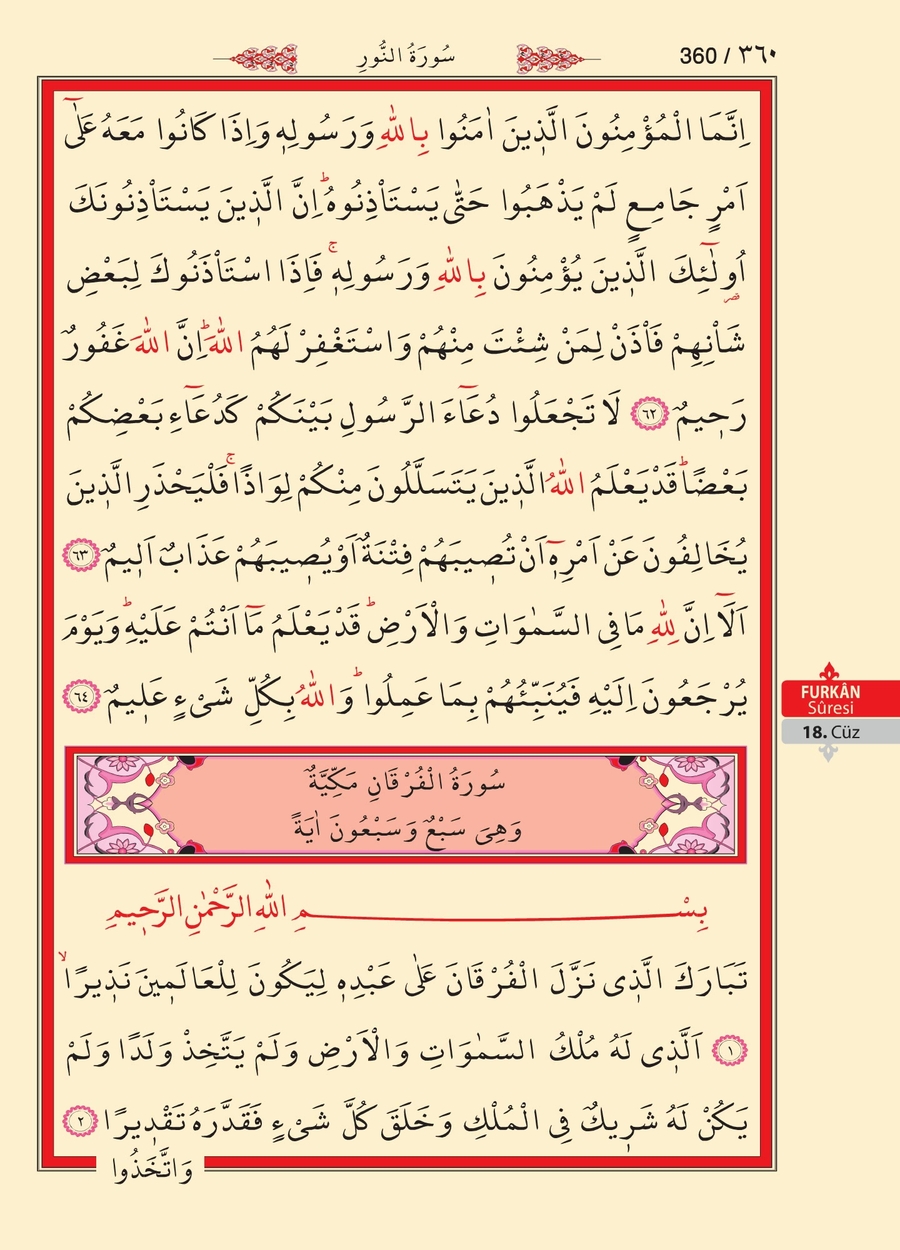 سُورَةُ النُّورِ
360 / ٣٦٠
اِنَّمَا الْمُؤْمِنُونَ الَّذ۪ينَ اٰمَنُوا بِاللّٰهِ وَرَسُولِه۪ وَاِذَا كَانُوا مَعَهُ عَلٰٓى
اَمْرٍ جَامِعٍ لَمْ يَذْهَبُوا حَتّٰى يَسْتَأْذِنُوهُۜ اِنَّ الَّذ۪ينَ يَسْتَأْذِنُونَكَ
اُو۬لٰٓئِكَ الَّذ۪ينَ يُؤْمِنُونَ بِاللّٰهِ وَرَسُولِه۪ۚ فَاِذَا اسْتَأْذَنُوكَ لِبَعْضِ
شَأْنِهِمْ فَأْذَنْ لِمَنْ شِئْتَ مِنْهُمْ وَاسْتَغْفِرْ لَهُمُ اللّٰهَۜ اِنَّ اللّٰهَ غَفُورٌ
رَح۪يمٌ ﴿٦٢﴾ لَا تَجْعَلُوا دُعَٓاءَ الرَّسُولِ بَيْنَكُمْ كَدُعَٓاءِ بَعْضِكُمْ
بَعْضًاۜ قَدْ يَعْلَمُ اللّٰهُ الَّذ۪ينَ يَتَسَلَّلُونَ مِنْكُمْ لِوَاذًاۚ فَلْيَحْذَرِ الَّذ۪ينَ
يُخَالِفُونَ عَنْ اَمْرِه۪ٓ اَنْ تُص۪يبَهُمْ فِتْنَةٌ اَوْ يُص۪يبَهُمْ عَذَابٌ اَل۪يمٌ ﴿٦٣﴾
اَلَٓا اِنَّ لِلّٰهِ مَا فِى السَّمٰوَاتِ وَالْاَرْضِۜ قَدْ يَعْلَمُ مَٓا اَنْتُمْ عَلَيْهِۜ وَيَوْمَ
يُرْجَعُونَ اِلَيْهِ فَيُنَبِّئُهُمْ بِمَا عَمِلُواۜ وَاللّٰهُ بِكُلِّ شَىْءٍ عَل۪يمٌ ﴿٦٤﴾
FURKÂN
Sûresi
18. Cüz
سُورَةُ الْفُرْقَانِ مَكِّيَّةٌ
وَهِىَ سَبْعٌ وَسَبْعُونَ اٰيَةً
بِسْمِ اللّٰهِ الرَّحْمٰنِ الرَّح۪يمِ
تَبَارَكَ الَّذ۪ى نَزَّلَ الْفُرْقَانَ عَلٰى عَبْدِه۪ لِيَكُونَ لِلْعَالَم۪ينَ نَذ۪يرًاۙ
﴿١﴾ اَلَّذ۪ى لَهُ مُلْكُ السَّمٰوَاتِ وَالْاَرْضِ وَلَمْ يَتَّخِذْ وَلَدًا وَلَمْ
يَكُنْ لَهُ شَر۪يكٌ فِى الْمُلْكِ وَخَلَقَ كُلَّ شَىْءٍ فَقَدَّرَهُ تَقْد۪يرًا ﴿٢﴾
وَاتَّخَذُوا